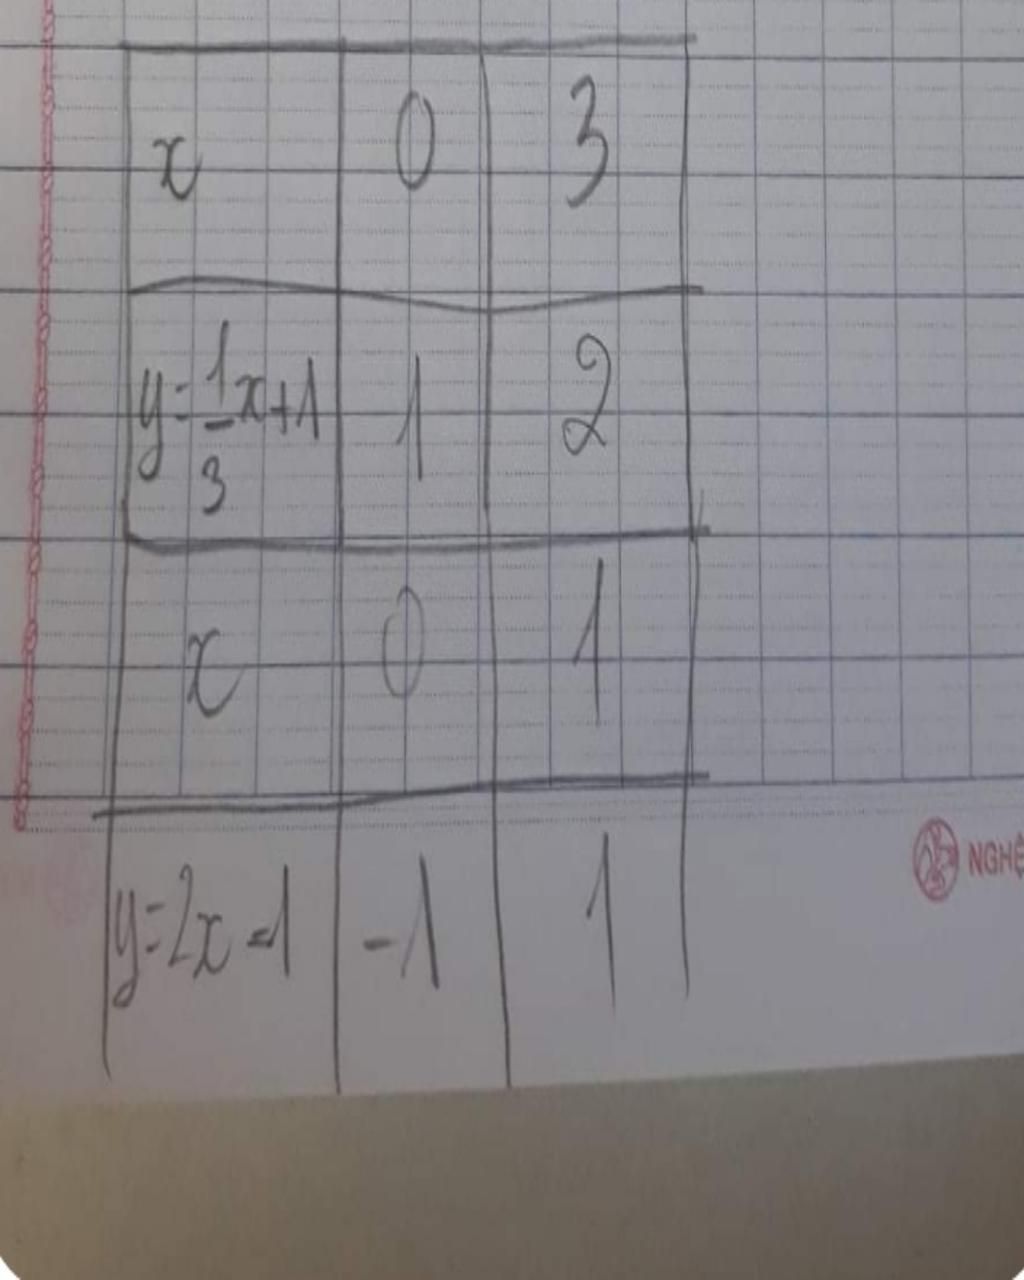 x 0 3
y = \frac{1}{3}x + 1 1 2
x 0 1
NGHỆ
y = 2x - 1 -1 1